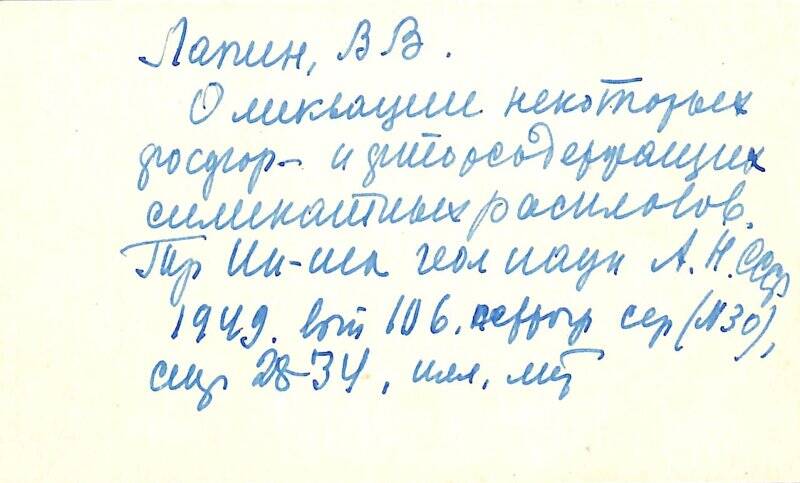 Лапин, В В.
О ликвации некоторых
фосфор- и фторсодержащих
силикатных расплавов.
Тр Ин-та геол наук А.Н. СССР
1949. вып 106. петрогр сер (№30),
стр 28-34, илл. лит